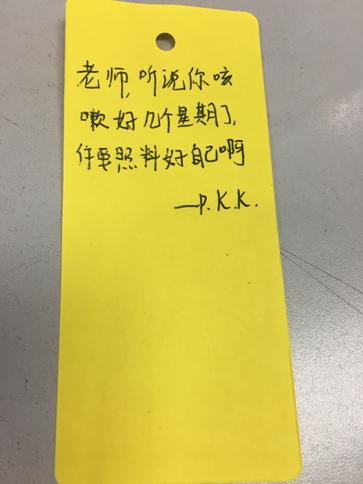 老师,听说你咳
嗽好几个星期了,
你要照料好自己啊
—P.K.K.